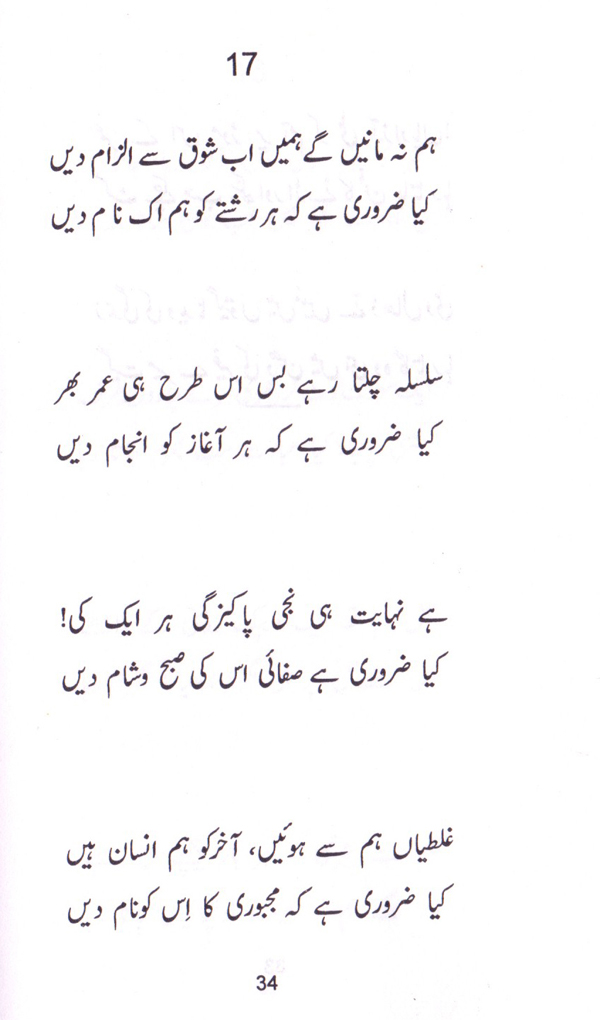 17
ہم نہ مانیں گے ہمیں اب شوق سے الزام دیں
کیا ضروری ہے کہ ہر رشتے کو ہم اک نام دیں
سلسلہ چلتا رہے بس اس طرح ہی عمر بھر
کیا ضروری ہے کہ ہر آغاز کو انجام دیں
ہے نہایت ہی نجی پاکیزگی ہر ایک کی!
کیا ضروری ہے صفائی اس کی صبح وشام دیں
غلطیاں ہم سے ہوئیں، آخرکو ہم انسان ہیں
کیا ضروری ہے کہ مجبوری کا اِس کونام دیں
34